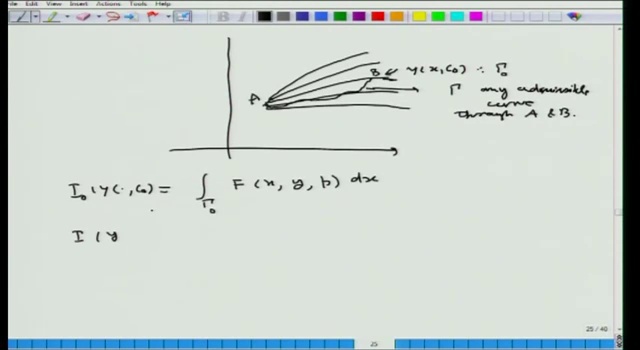 File Edit View Insert Actions Tools Help
B y(x, c₀) : Γ₀
A
Γ any admissible
curve
through A & B.
I₀(y(·, c₀) = ∫_Γ₀ F(x, y, p) dx
I (y
25 / 40
25